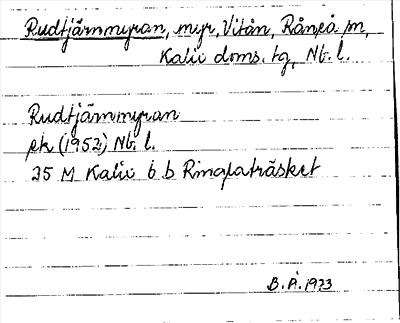 Rudtjärnmyran, myr, Vitån, Råneå sn,
Kalix doms. tg, Nb. l.
Rudtjärnmyran
ek (1952) Nb. l.
25 M Kalix 6 b Ringlaträsket
B. Å. 1973